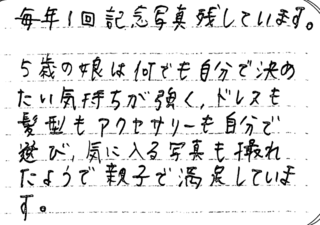 毎年1回記念写真残しています。
5歳の娘は何でも自分で決め
たい気持ちが強く、ドレスも
髪型もアクセサリーも自分で
選び、気に入る写真も撮れ
たようで親子で満足していま
す。